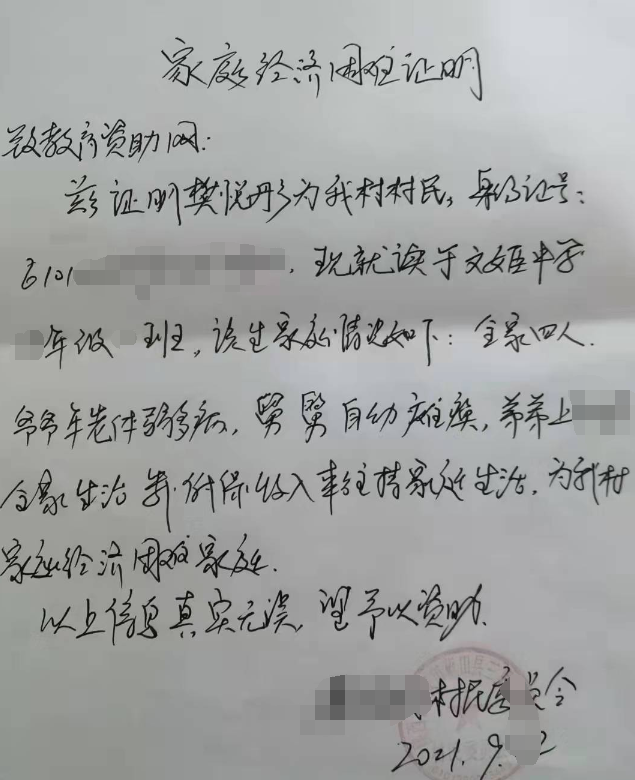 家庭经济困难证明
致教育资助网:
兹证明樊悦彤为我村村民,身份证号:
6101 ,现就读于文姬中学
年级 班,该生家庭情况如下:全家四人.
爷爷年老体弱多病,舅舅自幼瘫痪,弟弟上
全家生活 靠低保收入来维持家庭生活,为我村
家庭经济困难家庭.
以上信息真实无误,望予以资助.
村民委员会
2021.9. 2